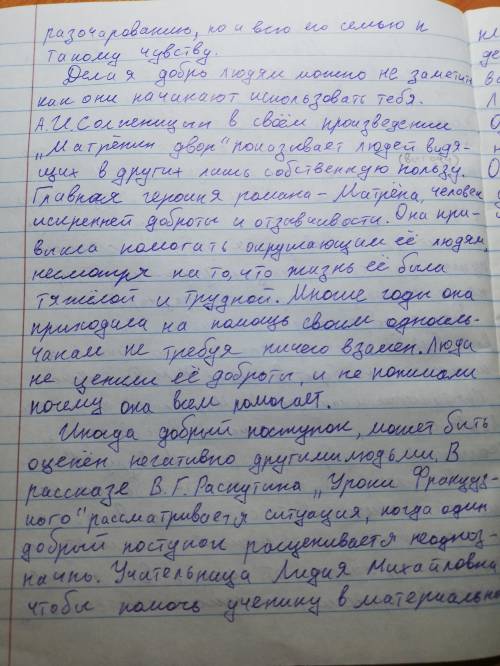 разочарованию, но и всю его семью к
такому чувству.
Делая добро людям можно не заметить
как они начинают использовать тебя.
А.И.Солженицын в своём произведении
„Матрёнин двор" показывает людей видя-
щих в других лишь собственную пользу.
(выгоду)
Главная героиня романа - Матрёна, человек
искренней доброты и отзывчивости. Она при-
выкла помогать окружающим её людям,
несмотря на то, что жизнь её была
тяжёлой и трудной. Многие годы она
приходила на помощь своим односель-
чанам не требуя ничего взамен. Люди
не ценили её доброты, и не понимали
почему она всем помогает.
Иногда добрый поступок, может быть
оценён негативно другими людьми. В
рассказе В.Г.Распутина „Уроки Француз-
кого" рассматривается ситуация, когда один
добрый поступок расценивается неодноз-
начно. Учительница Лидия Михайловна
чтобы помочь ученику в материально